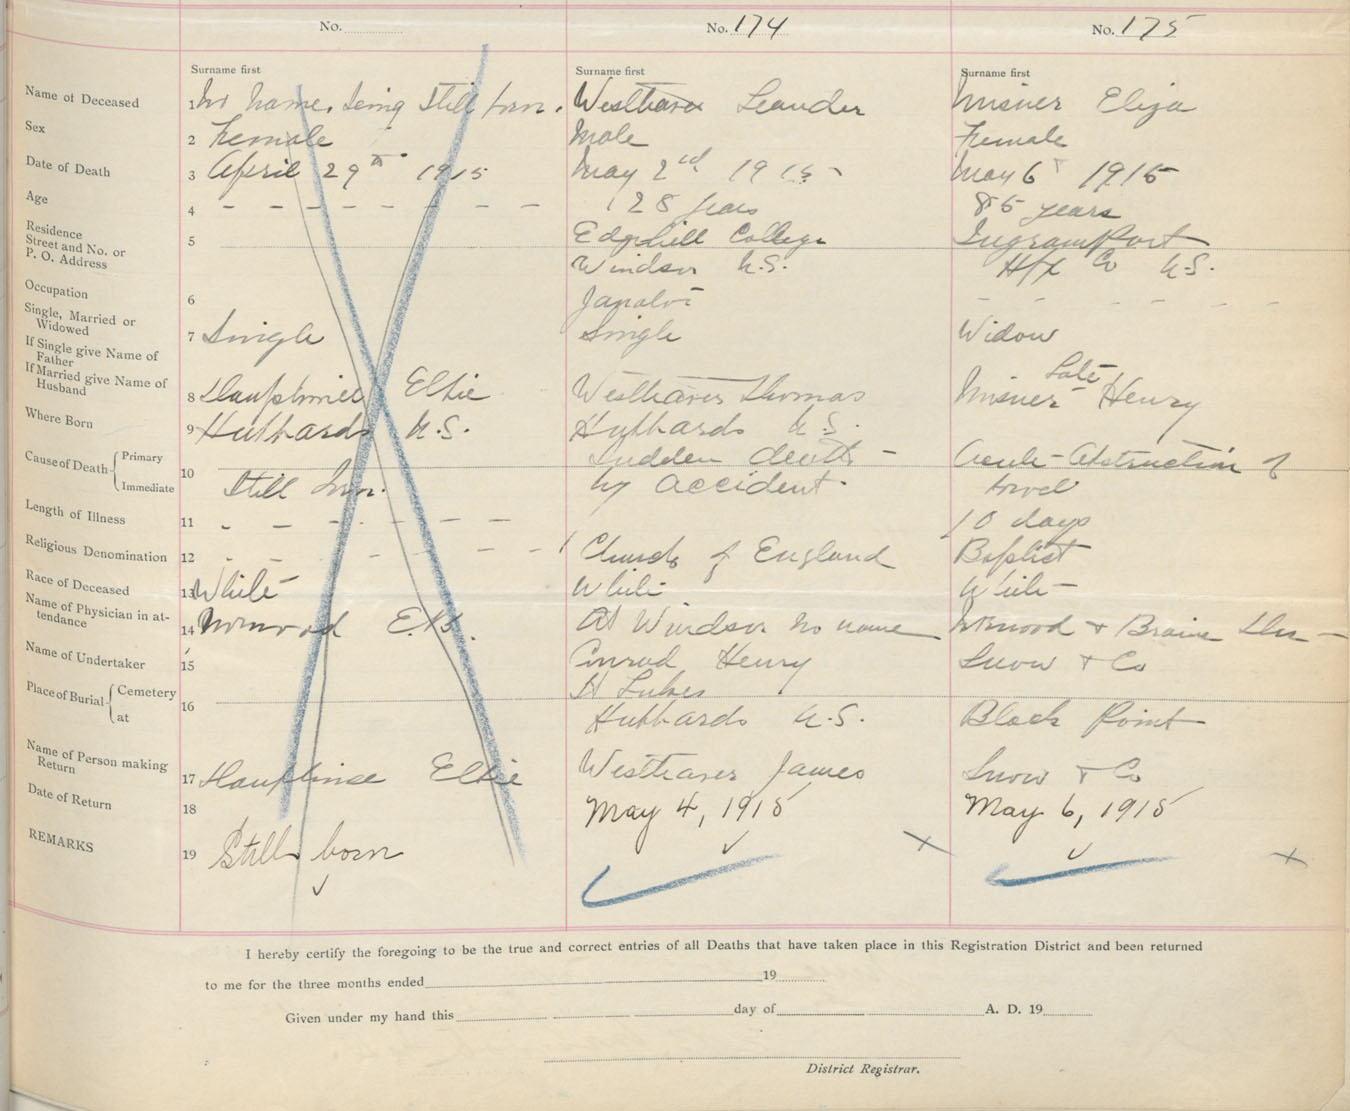 No.
No. 174
No. 175
Surname first
Surname first
Surname first
Name of Deceased
1 No Name, being Still born.
Westhaver Leander
Misner Eliza
Sex
2 Female
Male
Female
Date of Death
3 April 29th 1915
May 2nd 1915
May 6 1915
Age
4 - - - - - - - -
28 years
85 years
Residence
Street and No. or
P. O. Address
5
Edgehill College
Windsor N.S.
Ingramport
Hfx Co N.S.
Occupation
6
Janator
- - - - - -
Single, Married or
Widowed
7 Single
Single
Widow
If Single give Name of
Father
If Married give Name of
Husband
8 Dauphinee Elkie
Westhaver Thomas
Late
Misner Henry
Where Born
9 Hubbards N.S.
Hubbards N.S.
Cause of Death
Primary
Immediate
10 Still born.
Sudden death -
by accident.
Acute Abstruction of
bowel
Length of Illness
11 - - - - - - -
10 days
Religious Denomination
12 - - - - -
Church of England
Baptist
Race of Deceased
13 White
White
White
Name of Physician in at-
tendance
14 E.K.
At Windsor no name
& Braine Drs
Name of Undertaker
15
Conrad Henry
Snow & Co
Place of Burial
Cemetery
at
16
St Lukes
Hubbards N.S.
Black Point
Name of Person making
Return
17 Dauphinee Elkie
Westhaver James
Snow & Co
Date of Return
18
May 4, 1915
May 6, 1915
REMARKS
19 Still born
I hereby certify the foregoing to be the true and correct entries of all Deaths that have taken place in this Registration District and been returned
to me for the three months ended 19
Given under my hand this day of A. D. 19
District Registrar.